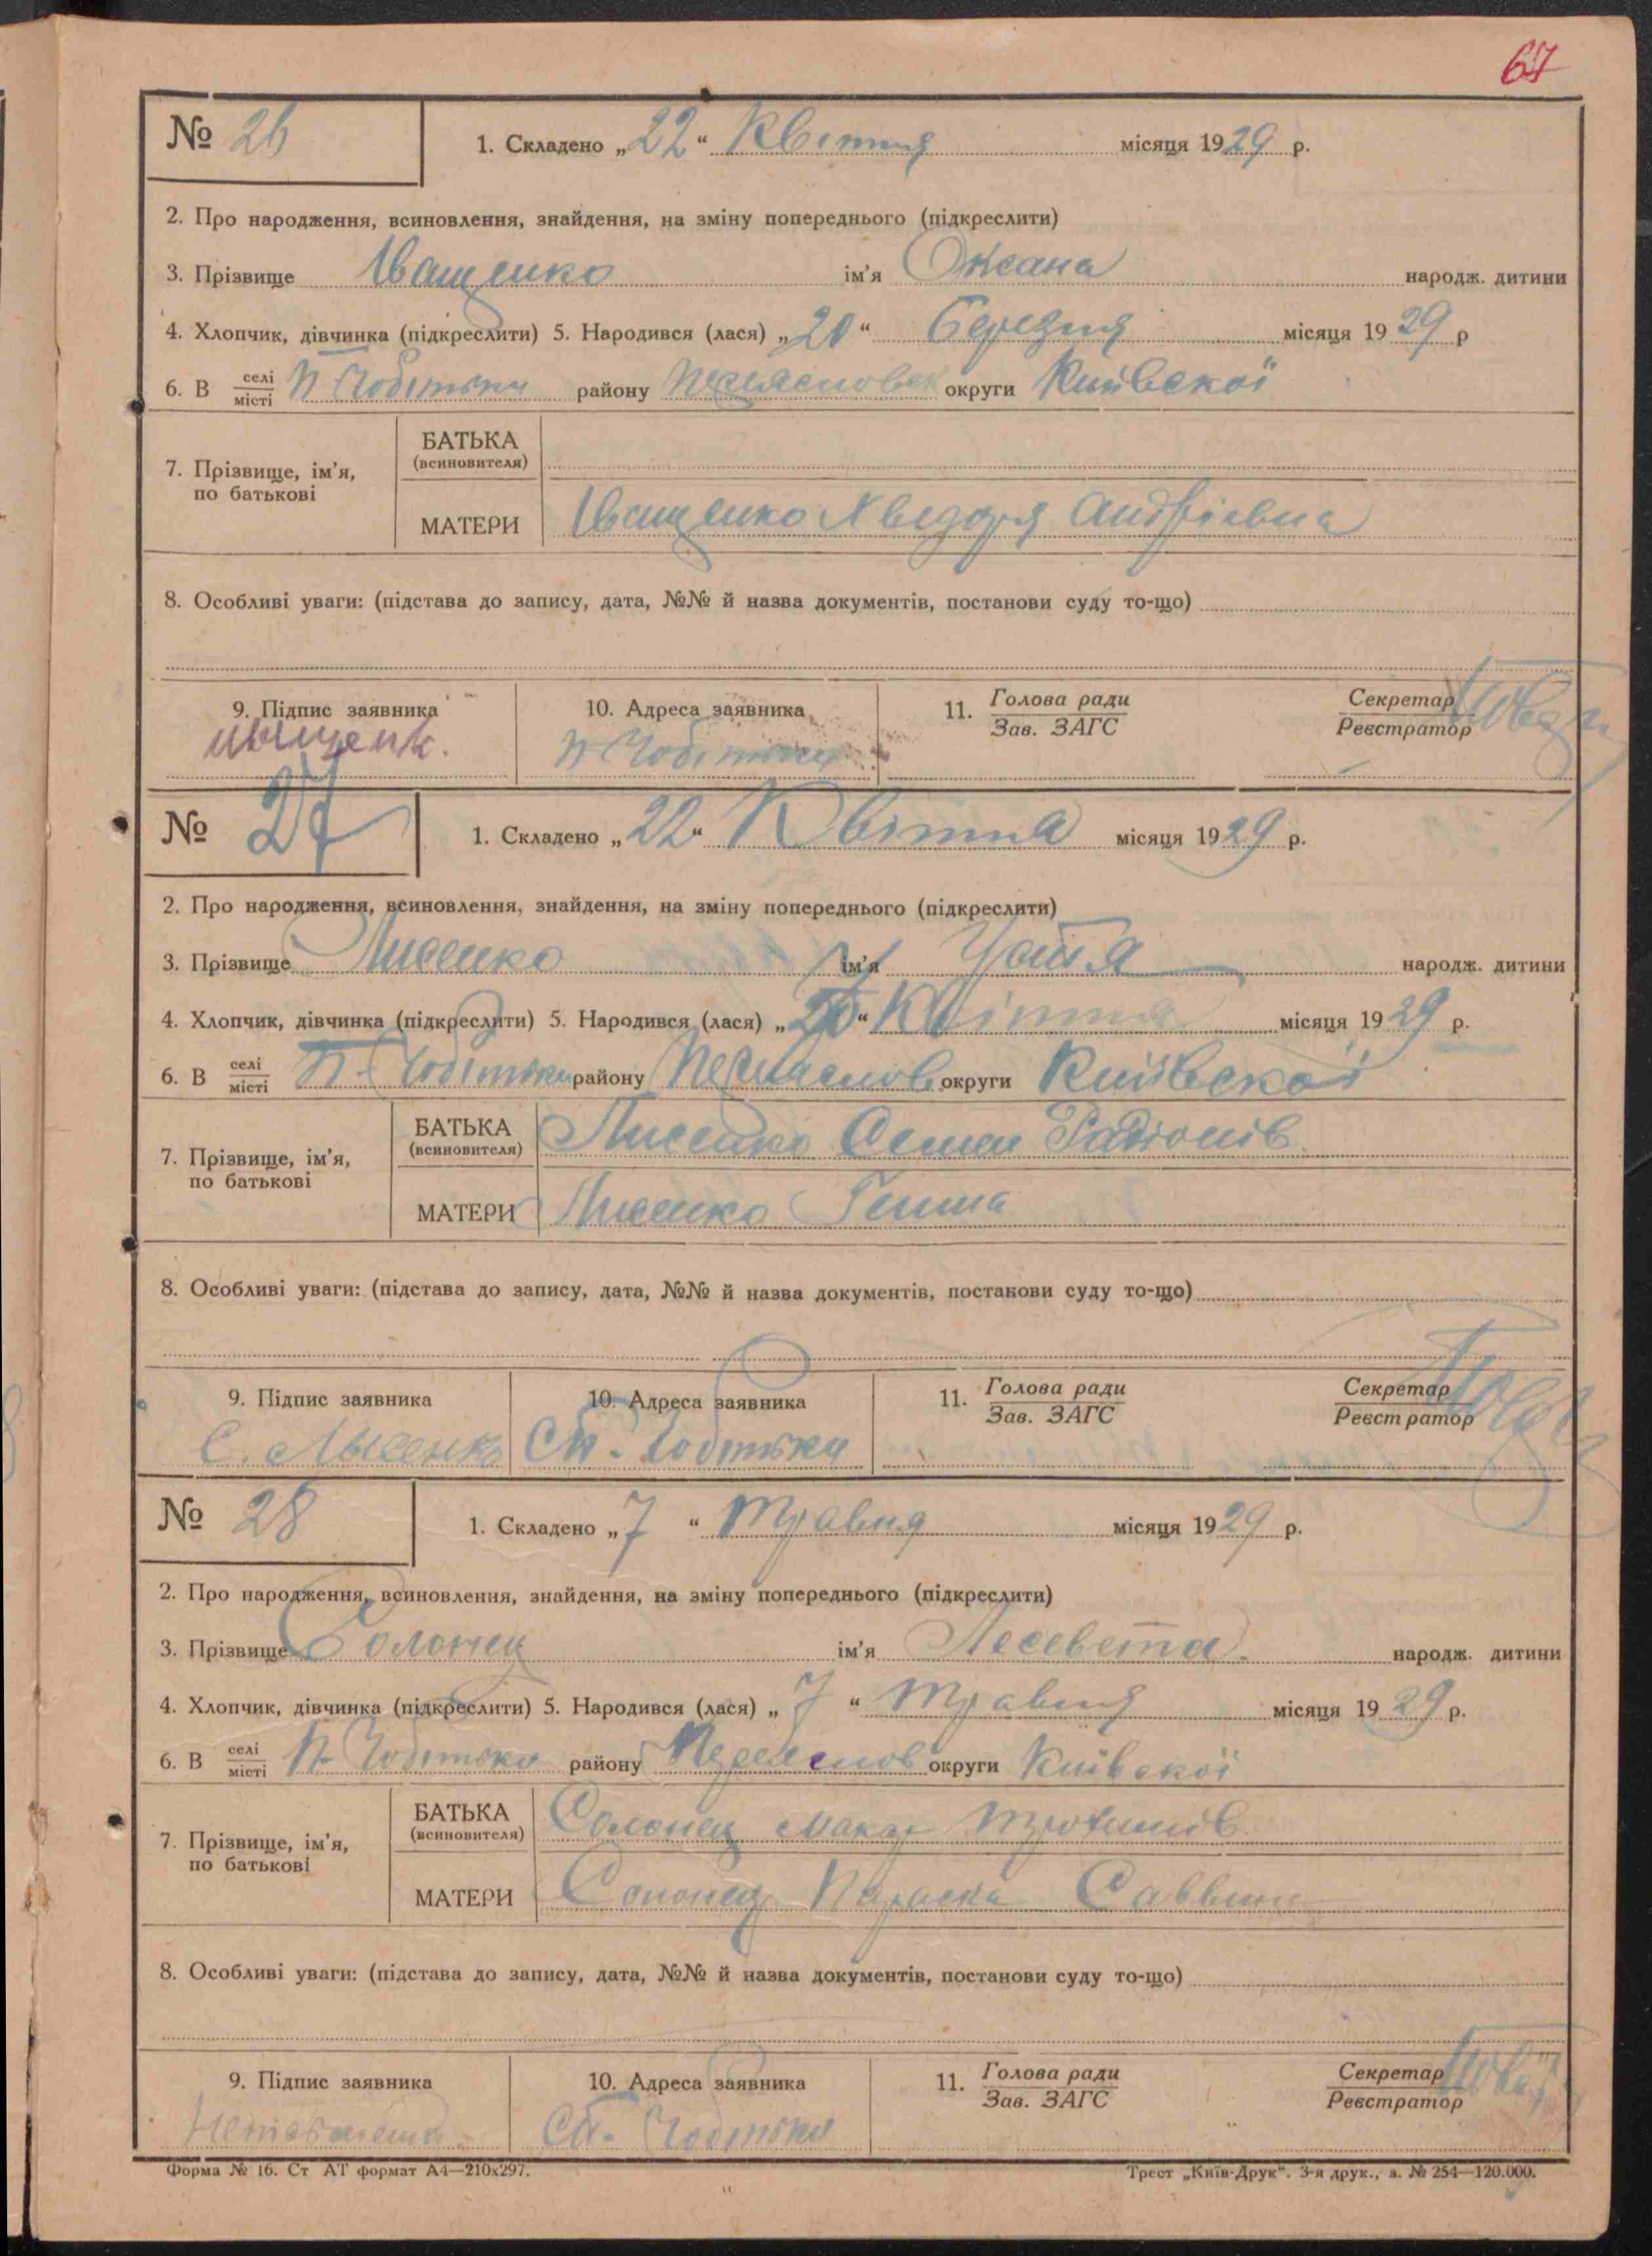 67
№ 26 1. Складено „22“ Квітня місяця 1929 р.
2. Про народження, всиновлення, знайдення, на зміну попереднього (підкреслити)
3. Прізвище Іващенко ім'я Оксана народж. дитини
4. Хлопчик, дівчинка (підкреслити) 5. Народився (лася) „20“ Березня місяця 1929 р
6. В селі місті П Чобітьки району округи Київскої
7. Прізвище, ім'я, по батькові
БАТЬКА (всиновителя)
МАТЕРИ Іващенко Андріевна
8. Особливі уваги: (підстава до запису, дата, №№ й назва документів, постанови суду то-що)
9. Підпис заявника 10. Адреса заявника 11. Голова ради Зав. ЗАГС Секретар Реєстратор
П Чобітьки
№ 27 1. Складено „22“ Квітня місяця 1929 р.
2. Про народження, всиновлення, знайдення, на зміну попереднього (підкреслити)
3. Прізвище Лисенко ім'я народж. дитини
4. Хлопчик, дівчинка (підкреслити) 5. Народився (лася) „20“ Квітня місяця 1929 р.
6. В селі місті П-Чобітьки району Переяслов округи Київскої
7. Прізвище, ім'я, по батькові
БАТЬКА (всиновителя) Лисенко Семен Радіонів
МАТЕРИ Лисенко Ганна
8. Особливі уваги: (підстава до запису, дата, №№ й назва документів, постанови суду то-що)
9. Підпис заявника 10. Адреса заявника 11. Голова ради Зав. ЗАГС Секретар Реєстратор
С. Лысенко Чобітьки
№ 28 1. Складено „7“ Травня місяця 1929 р.
2. Про народження, всиновлення, знайдення, на зміну попереднього (підкреслити)
3. Прізвище Солонец ім'я Лесевета. народж. дитини
4. Хлопчик, дівчинка (підкреслити) 5. Народився (лася) „7“ Травня місяця 1929 р.
6. В селі місті П-Чобітьки району Переяслов округи Київскої
7. Прізвище, ім'я, по батькові
БАТЬКА (всиновителя) Солонец Макар Трохимів
МАТЕРИ Солонец Параска
8. Особливі уваги: (підстава до запису, дата, №№ й назва документів, постанови суду то-що)
9. Підпис заявника 10. Адреса заявника 11. Голова ради Зав. ЗАГС Секретар Реєстратор
Чобітьки
Форма № 16. Ст АТ формат А4—210х297. Трест „Київ-Друк“. 3-я друк., з. № 254—120.000.